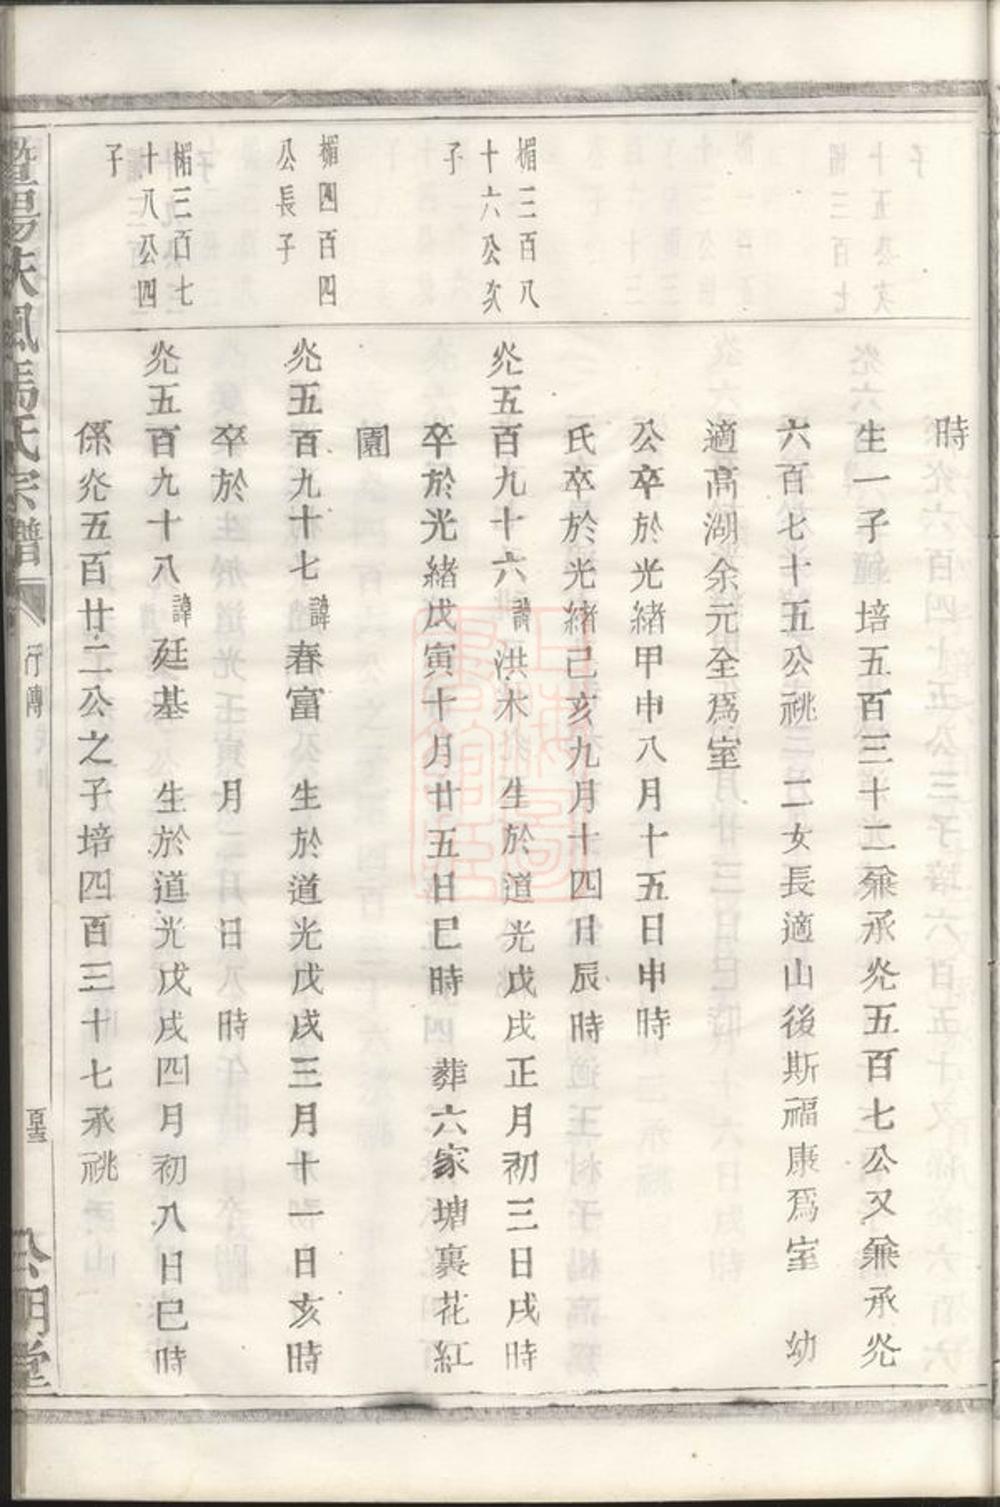 時
生一子 培五百三十二兼承炗五百七公又兼承炗
六百七十五公祧 二女長適山後斯福康爲室 幼
適高湖余元全爲室
公卒於光緒甲申八月十五日申時
氏卒於光緒己亥九月十四日辰時
楣三百八
十六公次
子
炗五百九十六諱洪木 生於道光戊戌正月初三日戌時
卒於光緒戊寅十月廿五日巳時 葬六家塘裏花紅
園
楣四百四
公長子
炗五百九十七諱春富 生於道光戊戌三月十一日亥時
卒於 月 日 時
楣三百七
十八公四
子
炗五百九十八諱廷基 生於道光戊戌四月初八日巳時
係炗五百廿二公之子培四百三十七承祧
暨陽扶風馬氏宗譜
行傳
公明堂